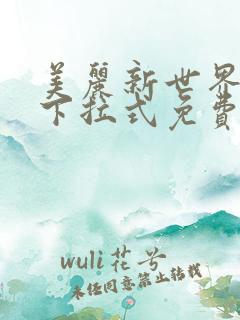 美丽新世界
下拉式免费
wuli花兮
未经同意禁止转载